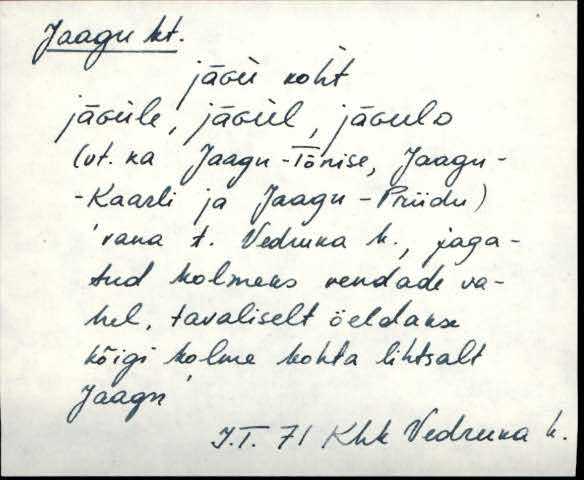 Jaagu kt.
jāGü koht
jāGüle, jāGül, jāGulo
(vt. ka Jaagu-Tõnise, Jaagu-
-Kaarli ja Jaagu-Priidu)
'vana t. Vedruka k., jaga-
tud kolmeks vendade va-
hel, tavaliselt öeldakse
kõigi kolme kohta lihtsalt
Jaagu'
J.T. 71 Khk Vedruka k.